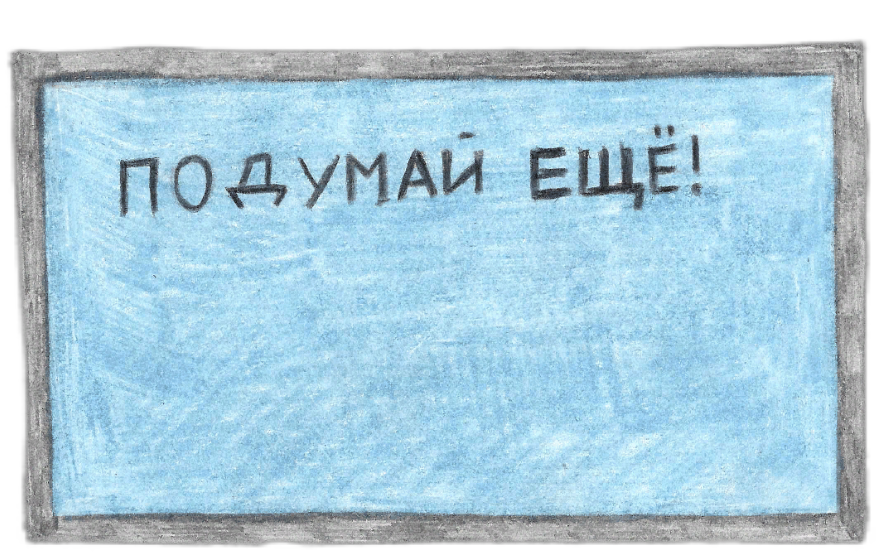 ПОДУМАЙ ЕЩЁ!